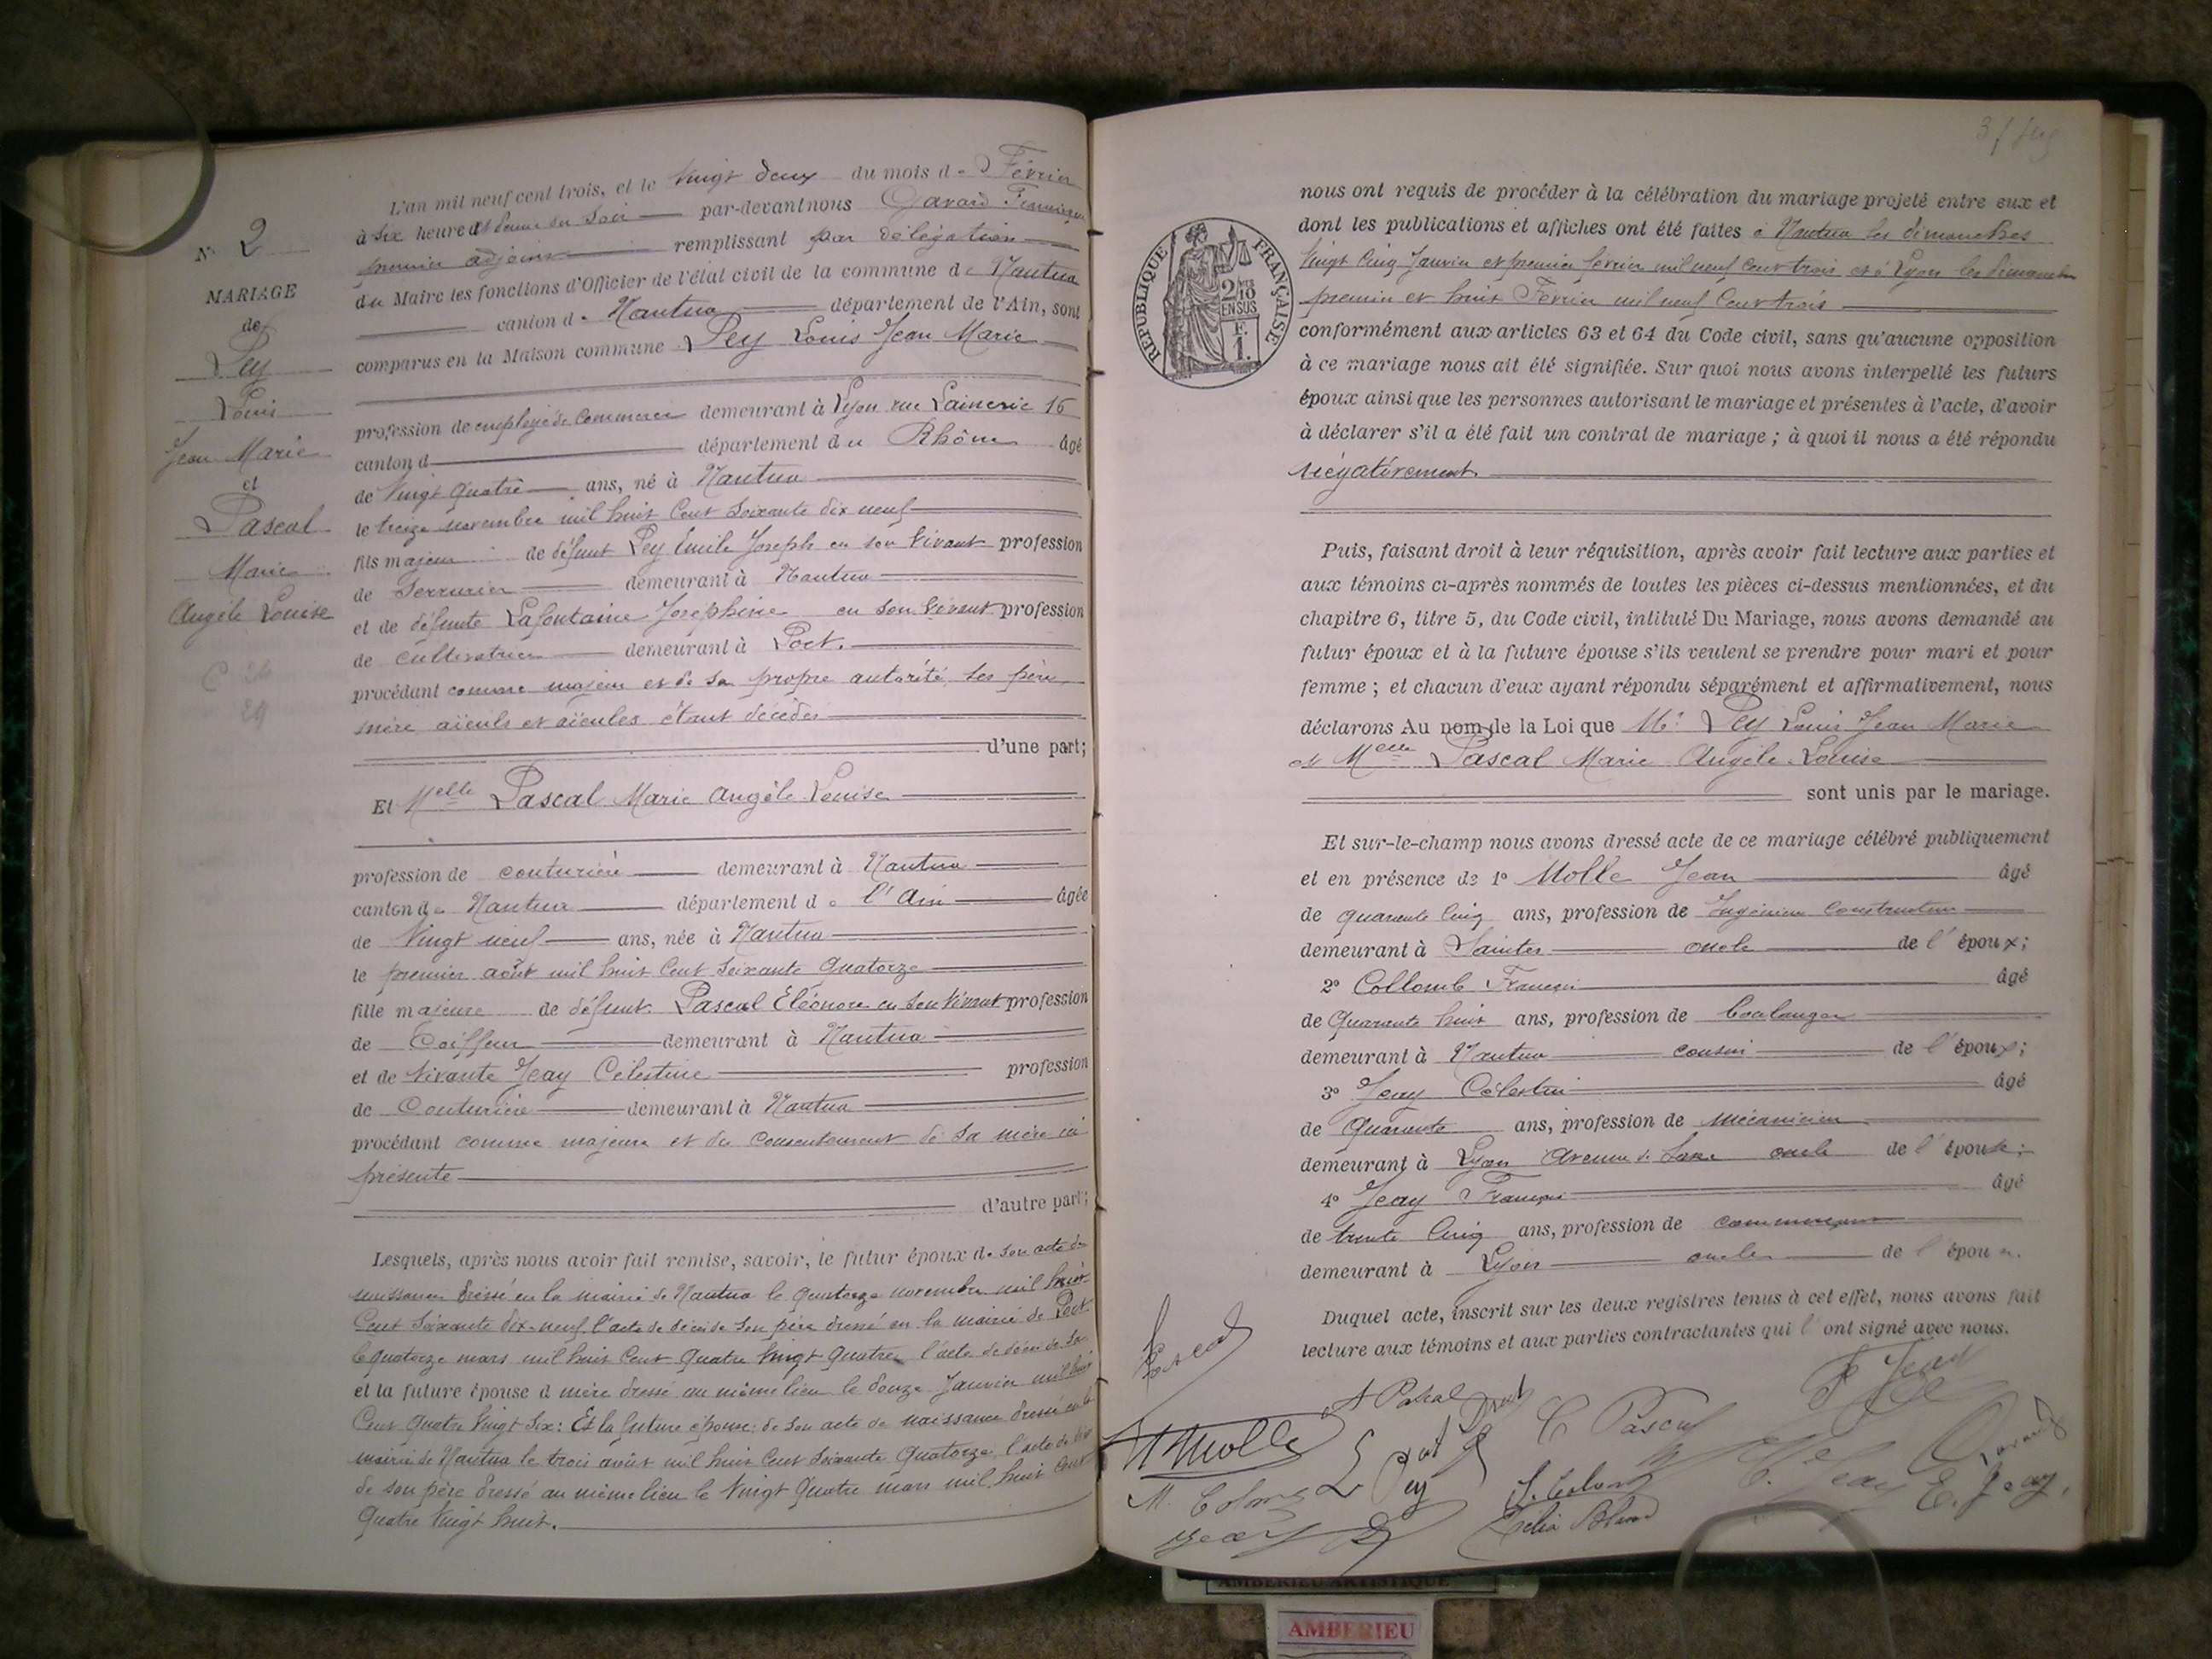 N° 2
MARIAGE
de
Pey
Louis
Jean Marie
et
Pascal
Marie
Angèle Louise
L'an mil neuf cent trois, et le vingt deux du mois de Février
à six heures du soir par-devant nous Gavard
premier adjoint remplissant par délégation
du Maire les fonctions d'Officier de l'état civil de la commune de Nantua
canton de Nantua département de l'Ain, sont
comparus en la Maison commune Pey Louis Jean Marie
profession de employé de commerce demeurant à Lyon rue Lainerie 16
canton d département du Rhône âgé
de vingt quatre ans, né à Nantua
le treize novembre mil huit cent soixante dix neuf
fils majeur de défunt Pey Emile Joseph en son vivant profession
de Serrurier demeurant à Nantua
et de défunte Lafontaine Joséphine en son vivant profession
de cultivatrice demeurant à
procédant comme majeur et de sa propre autorité, ses père
mère aïeuls et aïeules étant décédés
d'une part;
Et Melle Pascal Marie Angèle Louise
profession de couturière demeurant à Nantua
canton de Nantua département de l'Ain âgée
de vingt neuf ans, née à Nantua
le premier août mil huit cent soixante quatorze
fille majeure de défunt Pascal Eléonore en son vivant profession
de Coiffeur demeurant à Nantua
et de vivante Jeay Célestine profession
de Couturière demeurant à Nantua
procédant comme majeure et du consentement de sa mère ici
présente
d'autre part;
Lesquels, après nous avoir fait remise, savoir, le futur époux de son acte de
naissance dressé en la mairie de Nantua le quatorze novembre mil huit
Cent soixante dix-neuf, l'acte de décès de son père dressé en la mairie de
le quatorze mars mil huit cent quatre vingt quatre, l'acte de décès de sa
et la future épouse d mère dressé au même lieu le douze Janvier mil huit
Cent quatre vingt six: Et la future épouse: de son acte de naissance dressé en la
mairie de Nantua le trois août mil huit cent soixante quatorze, l'acte de décès
de son père dressé au même lieu le vingt quatre mars mil huit cent
quatre vingt huit.
RÉPUBLIQUE FRANÇAISE
2/10
EN SUS
F.
1.
nous ont requis de procéder à la célébration du mariage projeté entre eux et
dont les publications et affiches ont été faites à Nantua les dimanches
vingt cinq Janvier et premier février mil neuf cent trois et à Lyon les dimanches
premier et huit Février mil neuf cent trois
conformément aux articles 63 et 64 du Code civil, sans qu'aucune opposition
à ce mariage nous ait été signifiée. Sur quoi nous avons interpellé les futurs
époux ainsi que les personnes autorisant le mariage et présentes à l'acte, d'avoir
à déclarer s'il a été fait un contrat de mariage; à quoi il nous a été répondu
négativement
Puis, faisant droit à leur réquisition, après avoir fait lecture aux parties et
aux témoins ci-après nommés de toutes les pièces ci-dessus mentionnées, et du
chapitre 6, titre 5, du Code civil, intitulé Du Mariage, nous avons demandé au
futur époux et à la future épouse s'ils veulent se prendre pour mari et pour
femme; et chacun d'eux ayant répondu séparément et affirmativement, nous
déclarons Au nom de la Loi que Mr Pey Louis Jean Marie
et Melle Pascal Marie Angèle Louise
sont unis par le mariage.
Et sur-le-champ nous avons dressé acte de ce mariage célébré publiquement
et en présence de 1° Molle Jean âgé
de quarante cinq ans, profession de Ingénieur Constructeur
demeurant à Saintes oncle de l'époux;
2° Collomb François âgé
de quarante huit ans, profession de boulanger
demeurant à Nantua cousin de l'époux;
3° Jeay Célestin âgé
de quarante ans, profession de mécanicien
demeurant à Lyon Avenue de Saxe oncle de l'épouse;
4° Jeay François âgé
de trente cinq ans, profession de
demeurant à Lyon oncle de l'épou
Duquel acte, inscrit sur les deux registres tenus à cet effet, nous avons fait
lecture aux témoins et aux parties contractantes qui l'ont signé avec nous.
A Pascal
C Pascal
F Jeay
Molle
L Pey
C. Jeay
E. Jeay.
AMBERIEU ARTISTIQUE
AMBERIEU